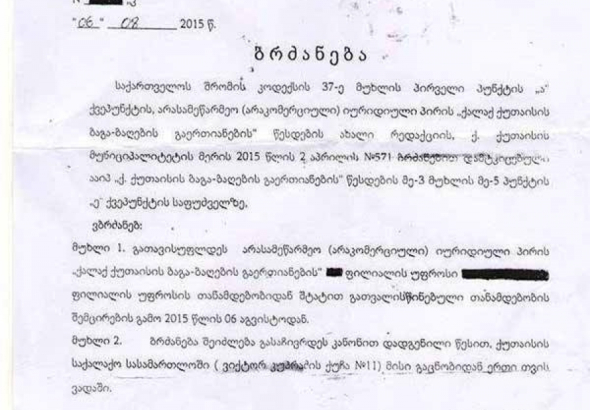 N
"06" 08 2015 წ.
ბრძანება
საქართველოს შრომის კოდექსის 37-ე მუხლის პირველი პუნქტის „ა"
ქვეპუნქტის, არასამეწარმეო (არაკომერციული) იურიდიული პირის „ქალაქ ქუთაისის
ბაგა-ბაღების გაერთიანების" წესდების ახალი რედაქციის, ქ. ქუთაისის
მუნიციპალიტეტის მერის 2015 წლის 2 აპრილის №571 ბრძანებით დამტკიცებული
ააიპ „ქ. ქუთაისის ბაგა-ბაღების გაერთიანების" წესდების მე-3 მუხლის მე-5 პუნქტის
„ე" ქვეპუნქტის საფუძველზე,
ვბრძანებ:
მუხლი 1. გათავისუფლდეს არასამეწარმეო (არაკომერციული) იურიდიული პირის
„ქალაქ ქუთაისის ბაგა-ბაღების გაერთიანების" ფილიალის უფროსი
ფილიალის უფროსის თანამდებობიდან შტატით გათვალისწინებული თანამდებობის
შემცირების გამო 2015 წლის 06 აგვისტოდან.
მუხლი 2. ბრძანება შეიძლება გასაჩივრდეს კანონით დადგენილი წესით, ქუთაისის
საქალაქო სასამართლოში ( ვიქტორ კუპრაძის ქუჩა №11) მისი გაცნობიდან ერთი თვის
ვადაში.